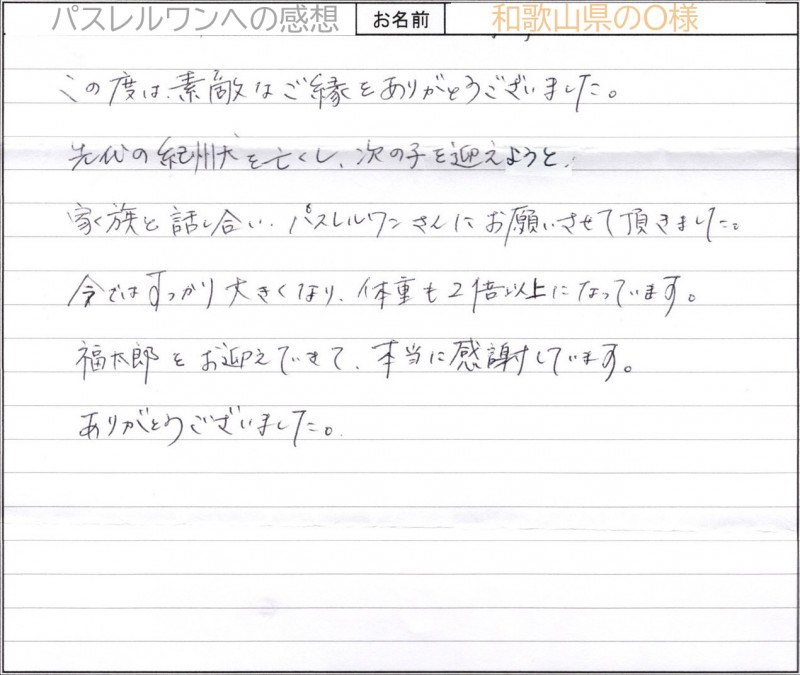 パスレルワンへの感想 お名前 和歌山県のO様
この度は、素敵なご縁をありがとうございました。
先代の紀州犬を亡くし、次の子を迎えようと、
家族と話し合い、パスレルワンさんにお願いさせて頂きました。
今ではすっかり大きくなり、体重も2倍以上になっています。
福太郎をお迎えできて、本当に感謝しています。
ありがとうございました。